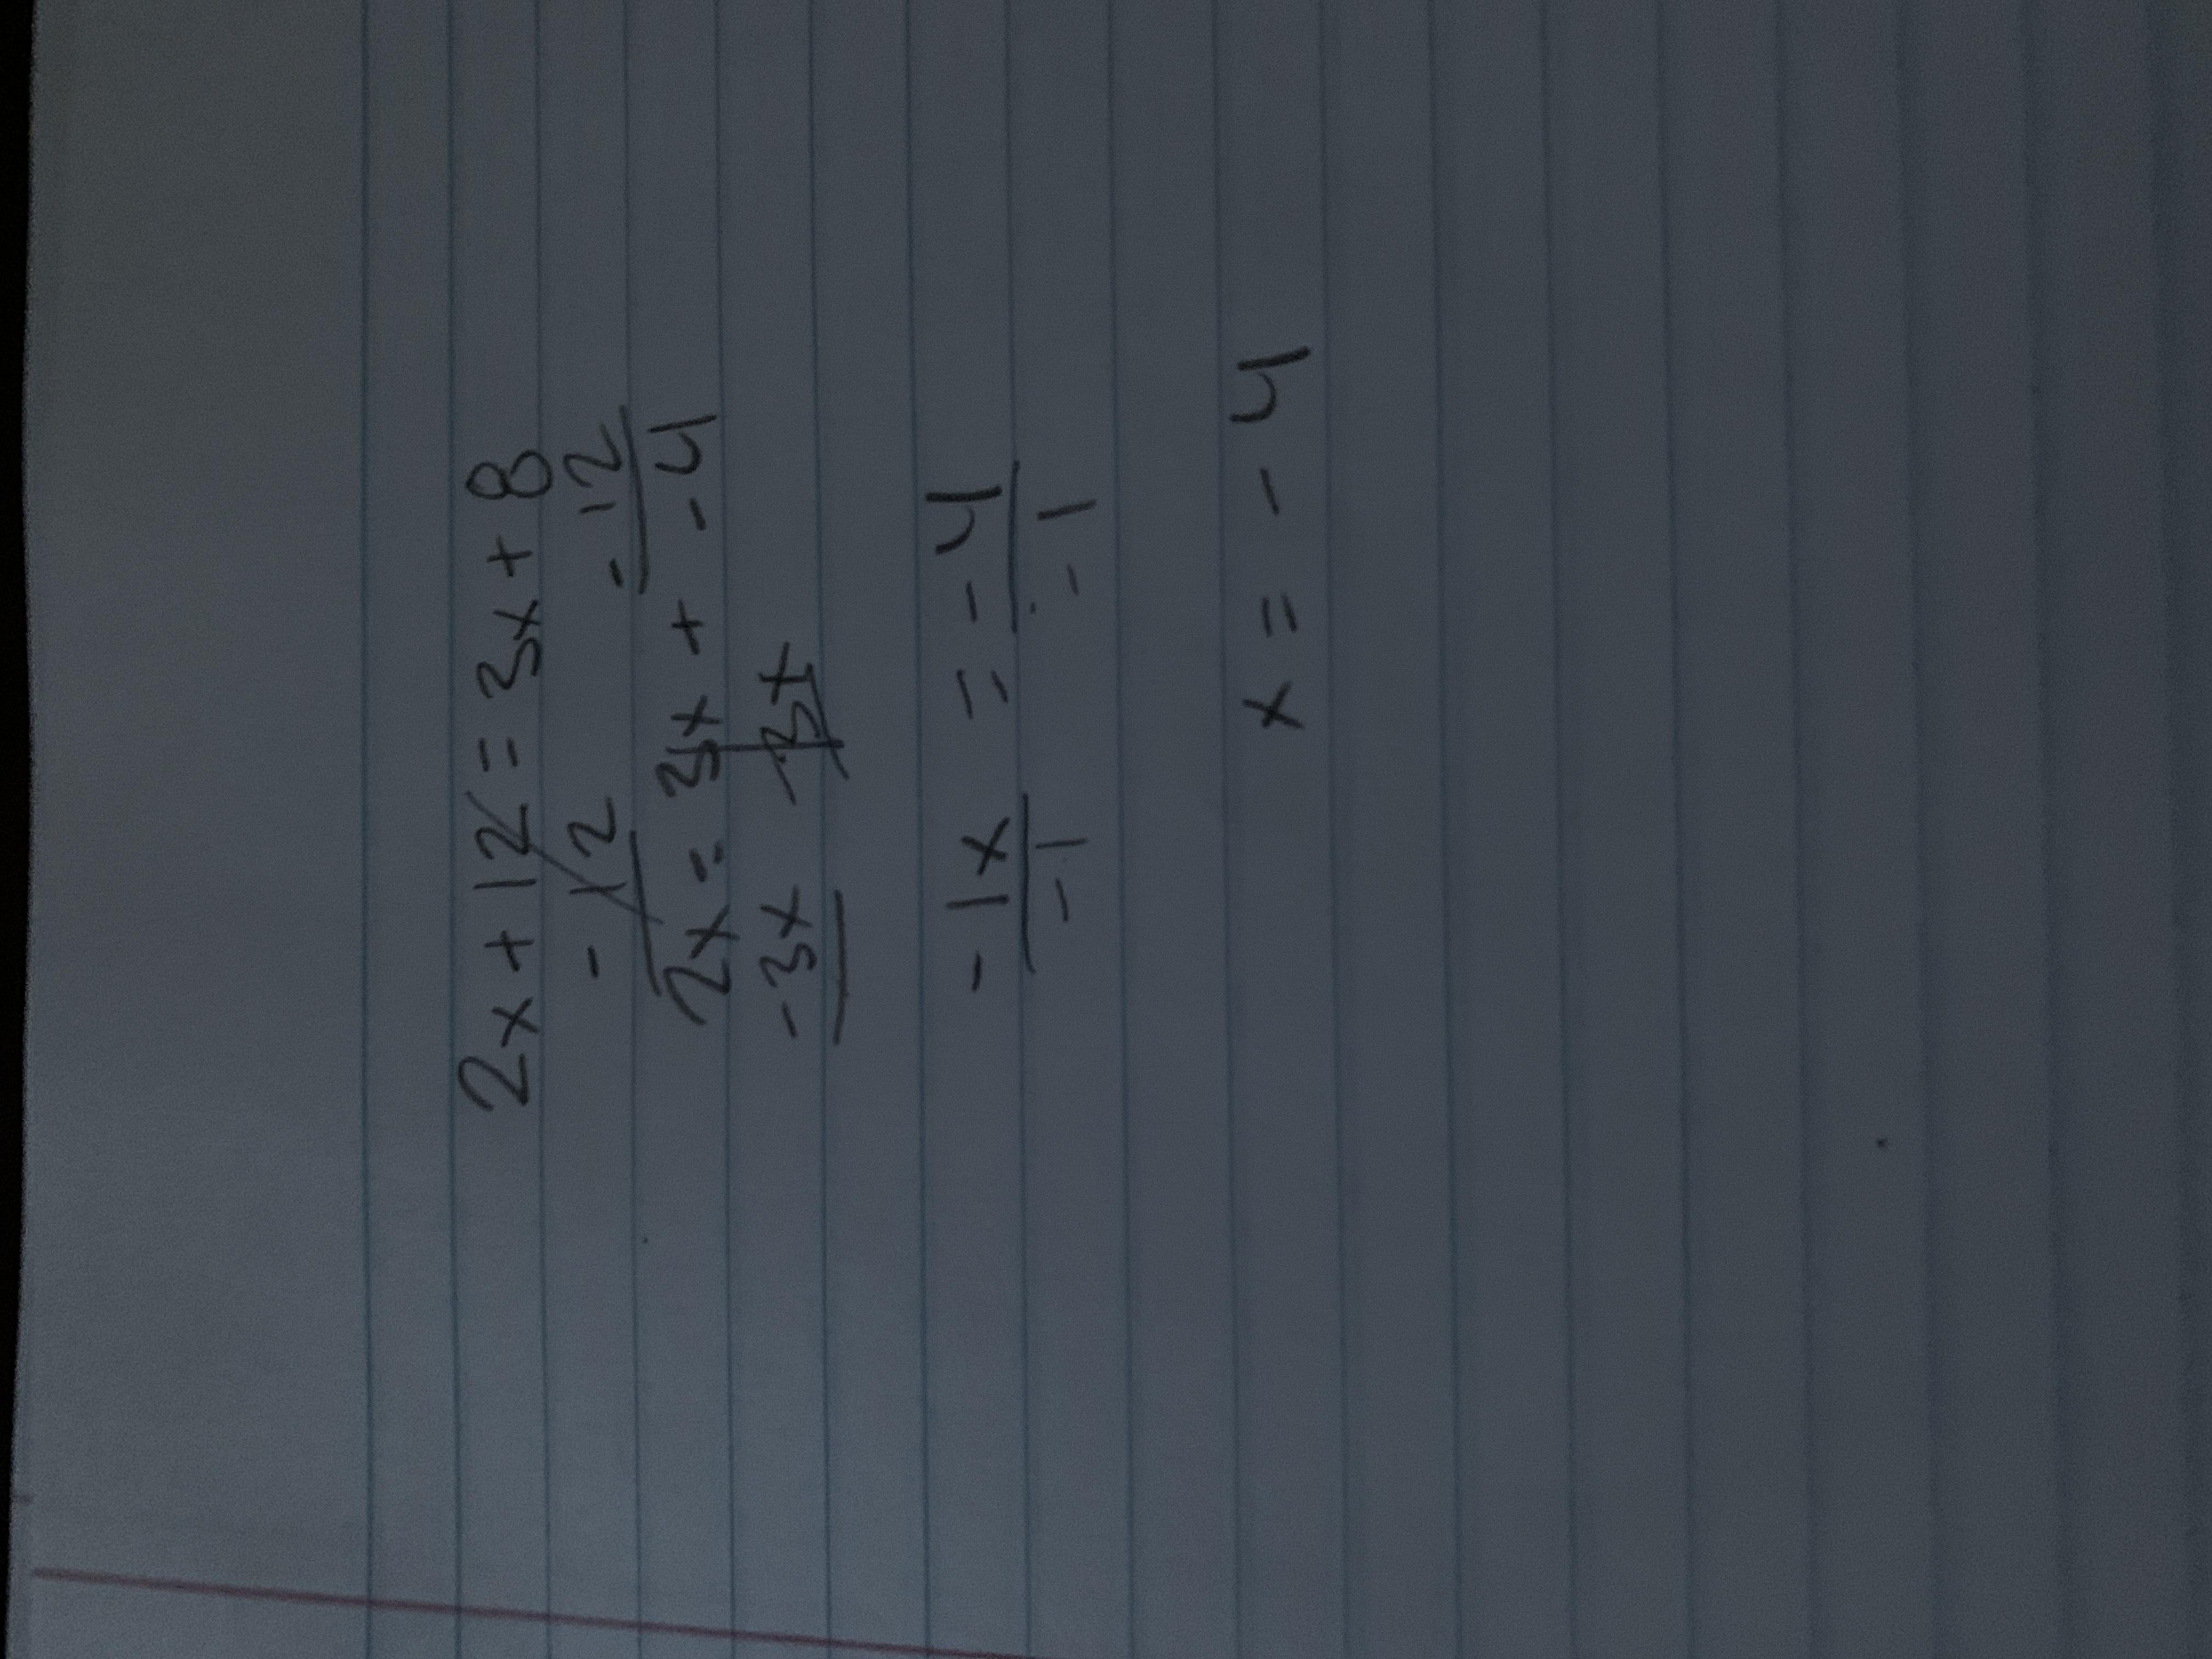 2x + 12 = 3x + 8
- 12 - 12
2x = 3x + - 4
-3x -3x
-1x = -4
-1 -1
x = -4